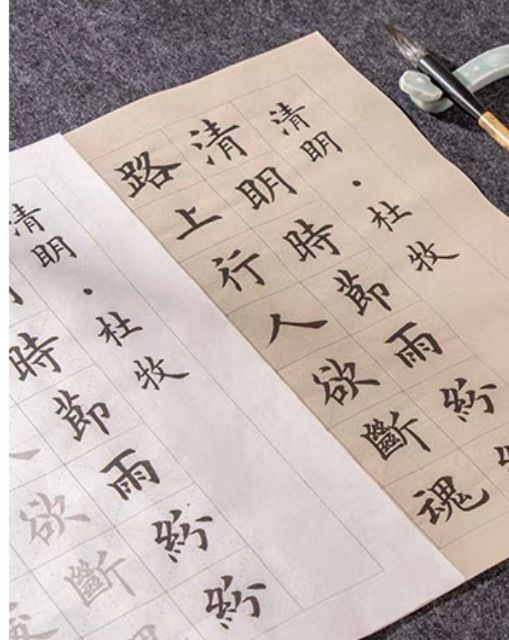 清明·杜牧
清明時節雨紛
路上行人欲斷魂
清明·杜牧
時節雨紛紛
欲斷